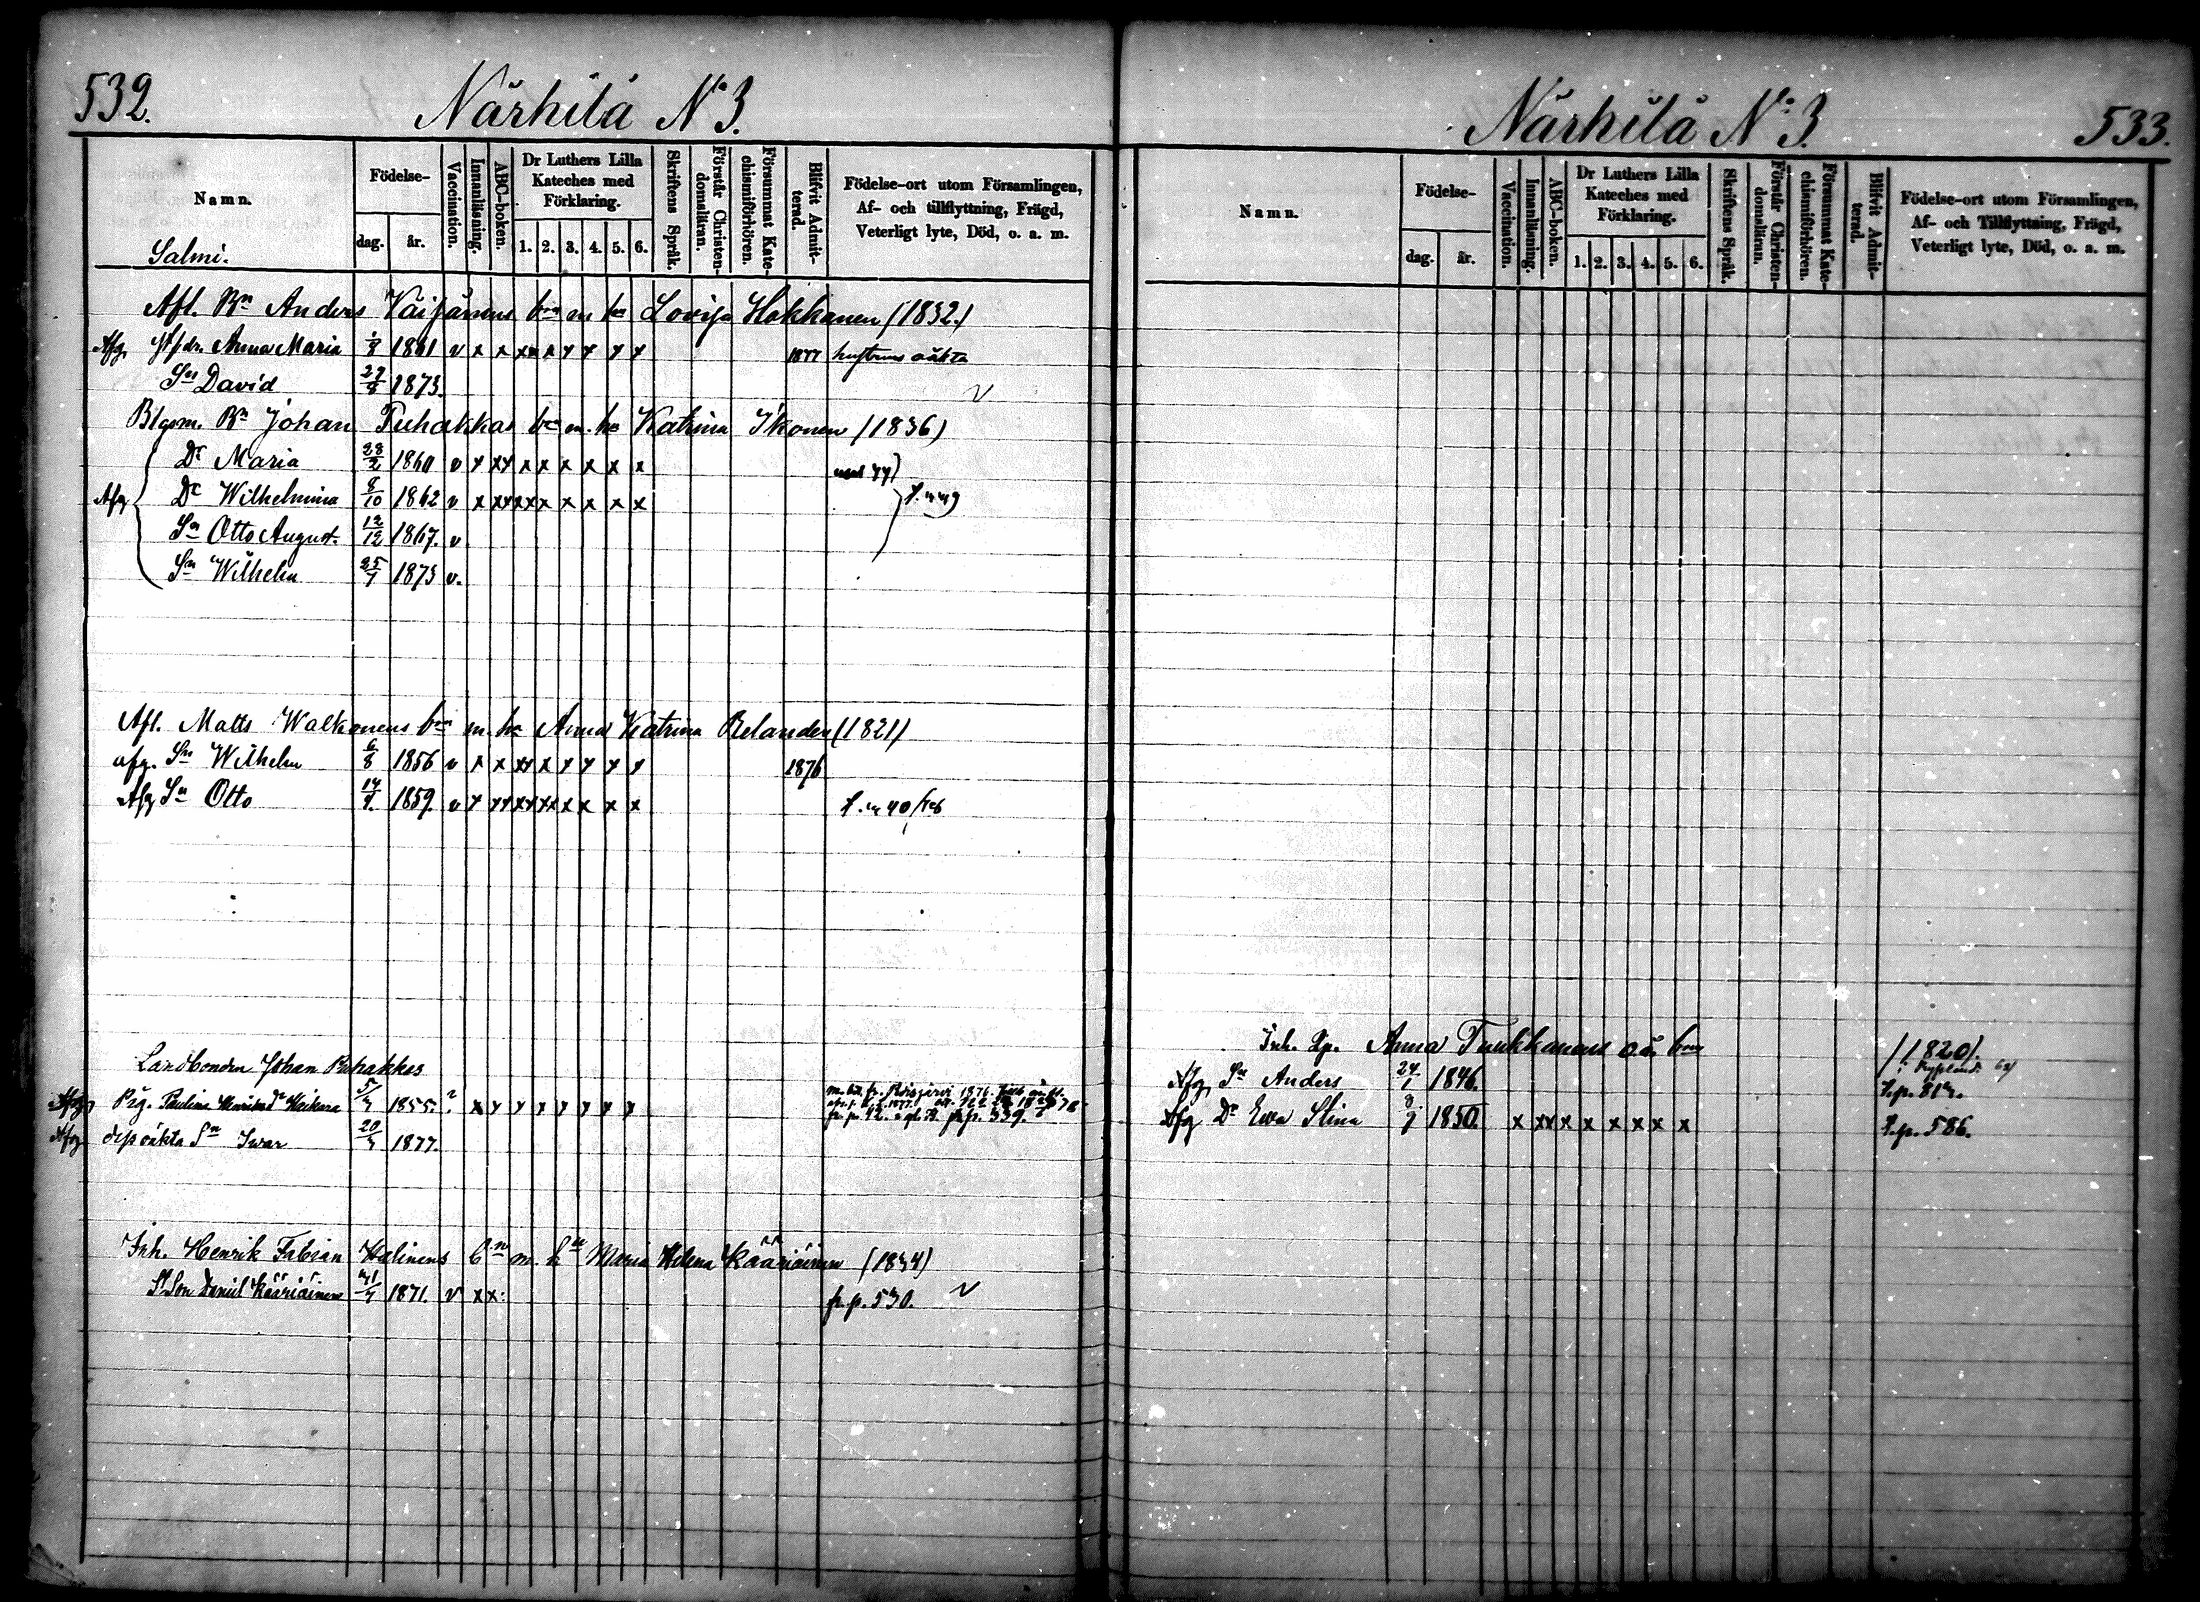 532.
Närhilä N:o 3.
Namn.
Födelse-
dag. år.
Vaccination.
Innanläsning.
ABC-boken.
Dr Luthers Lilla
Kateches med
Förklaring.
1. 2. 3. 4. 5. 6.
Skriftens Språk.
Förstår Christen-
domsläran.
Försummat Kate-
chismiförhören.
Blifvit Admit-
terad.
Födelse-ort utom Församlingen,
Af- och tillflyttning, Frägd,
Veterligt lyte, Död, o. a. m.
Salmi.
Afl. Bn Anders Väisänens bn m. ha Lovisa Hakkanen (1832.)
Afg. Anna Maria 1/8 1861 v x x xx x x x x x 1877 hustrus oäkta
Sn David 27/8 1873.
Blgsm. Bn Johan Puhakkas bn m. ha Katrina Ikonen (1836)
Dr Maria 28/2 1860 v x xx x x x x x x
Afg Dr Wilhelmina 8/10 1862 v x xx xx x x x x x
Sn Otto August 12/12 1867. v
Sn Wilhelm 25/7 1873 v.
Afl. Matts Walkonens bn m. ha Anna Katrina Relander (1821)
afg. Sn Wilhelm 6/8 1856 v x x xx x x x x x 1876
Afg Sn Otto 14/9. 1859. v x xx xx xx x x x x
Landbonden Johan Puhakkas
Afg Pig. Paulina Henriksdr Heikura 5/7 1855. ? x x x x x x x x
Afg dess oäkta Sn Iwar 20/7 1877.
Inh. Henrik Fabian Halinens bn m. hu Maria Helena Kääriäinen (1834)
Son Daniel Kääriäinen 31/7 1871. v x x.
fr. p. 530.
Närhilä N:o 3.
533.
Namn.
Födelse-
dag. år.
Vaccination.
Innanläsning.
ABC-boken.
Dr Luthers Lilla
Kateches med
Förklaring.
1. 2. 3. 4. 5. 6.
Skriftens Språk.
Förstår Christen-
domsläran.
Försummat Kate-
chismiförhören.
Blifvit Admit-
terad.
Födelse-ort utom Församlingen,
Af- och Tillflyttning, Frägd,
Veterligt lyte, Död, o. a. m.
Inh. Anna Turkkanens oä. bn (1820).
Afg Sn Anders 24/1 1846.
Afg Dr Ewa Stina 8/9 1850. x xx x x x x x x t. p. 586.